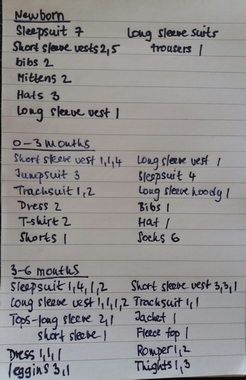 Newborn
Sleepsuit 7 Long sleeve suits
Short sleeve vests 2,5 trousers 1
bibs 2
Mittens 2
Hats 3
Long sleeve vest 1
0-3 months
Short sleeve vest 1,1,4 Long sleeve vest 1
Jumpsuit 3 Sleepsuit 4
Tracksuit 1,2 Long sleeve hoody 1
Dress 2 Bibs 1
T-shirt 2 Hat 1
Shorts 1 Socks 6
3-6 months
Sleepsuit 1,4,1,2 Short sleeve vest 3,3,1
Long sleeve vest 1,1,1,2 Tracksuit 1,1
Tops-long sleeve 2,1 Jacket 1
short sleeve 1 Fleece top 1
Dress 1,1,1 Romper 1,2
leggins 3,1 Thights 1,3